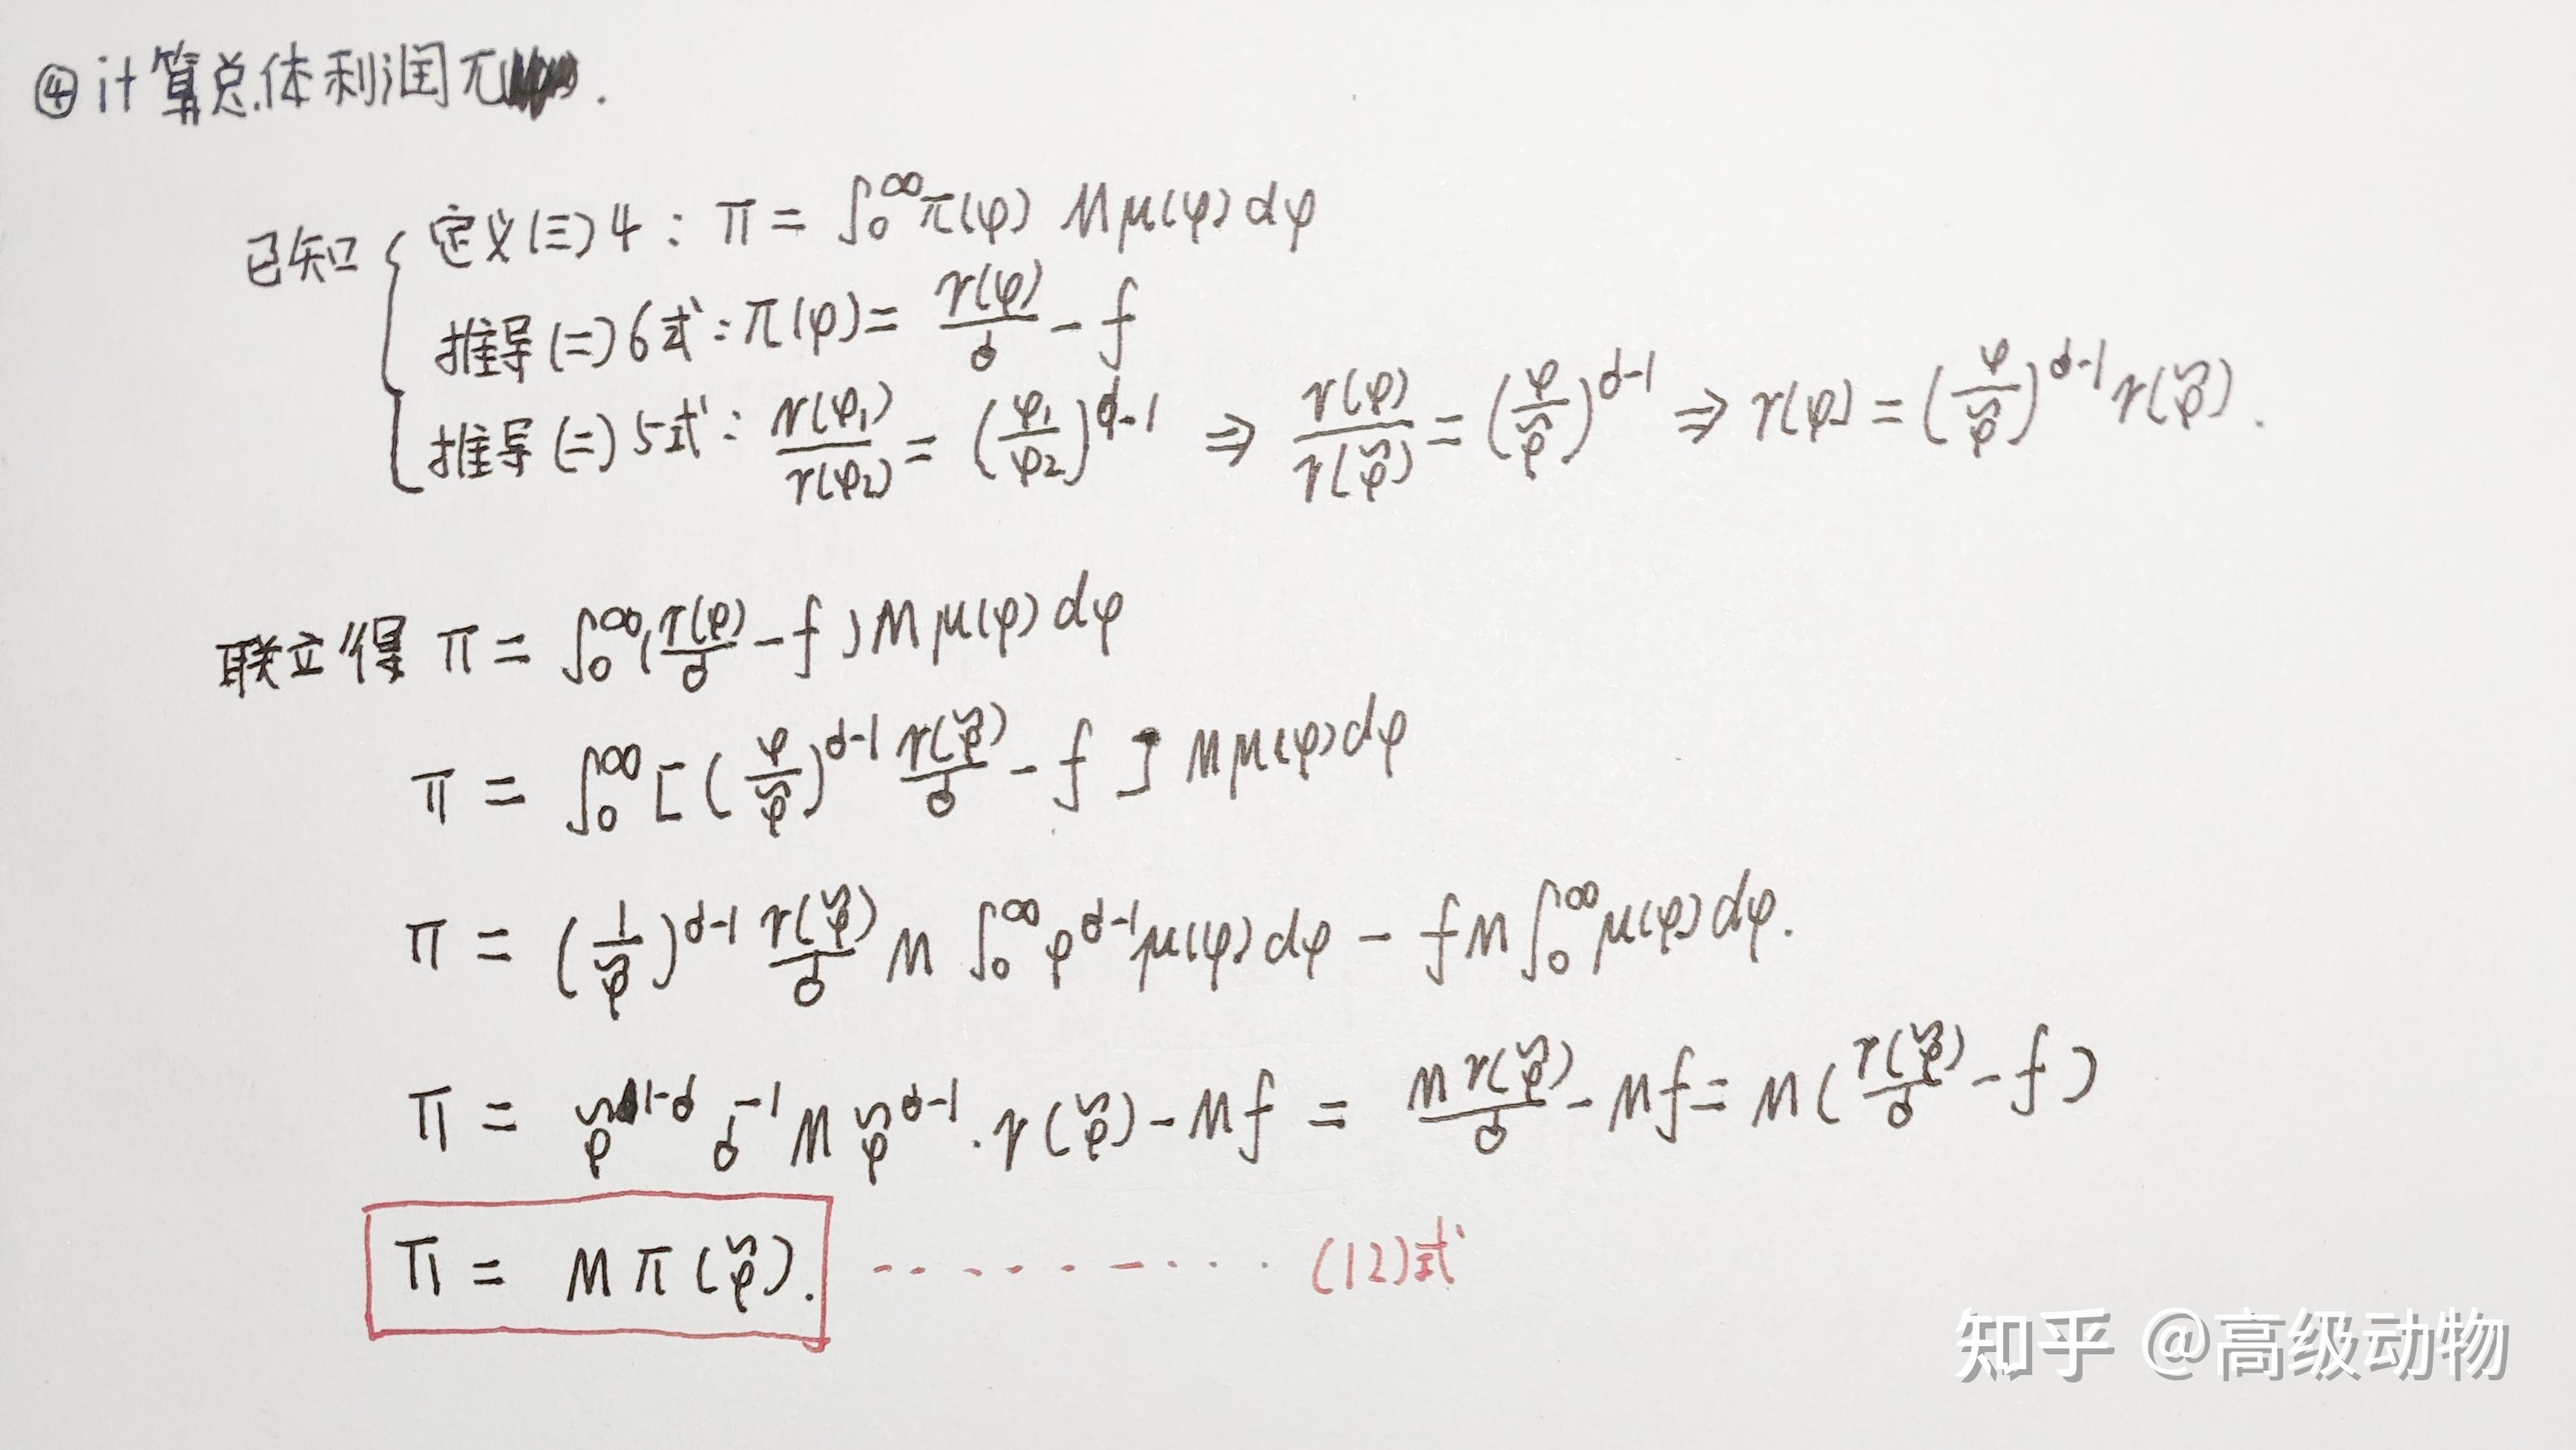 ④计算总体利润π.
已知 { 定义(三)4: Π = ∫₀^∞ π(φ) Mμ(φ)dφ
推导(二)6式: π(φ) = r(φ)/σ - f
推导(二)5式: r(φ₁)/r(φ₂) = (φ₁/φ₂)^(σ-1) ⇒ r(φ)/r(φ̃) = (φ/φ̃)^(σ-1) ⇒ r(φ) = (φ/φ̃)^(σ-1) r(φ̃).
联立得 Π = ∫₀^∞ (r(φ)/σ - f) Mμ(φ)dφ
Π = ∫₀^∞ [(φ/φ̃)^(σ-1) r(φ̃)/σ - f] Mμ(φ)dφ
Π = (1/φ̃)^(σ-1) r(φ̃)/σ M ∫₀^∞ φ^(σ-1) μ(φ)dφ - fM ∫₀^∞ μ(φ)dφ.
Π = φ̃^(1-σ) σ^(-1) M φ̃^(σ-1) · r(φ̃) - Mf = M r(φ̃)/σ - Mf = M(r(φ̃)/σ - f)
Π = M π(φ̃). ·········· (12)式
知乎 @高级动物